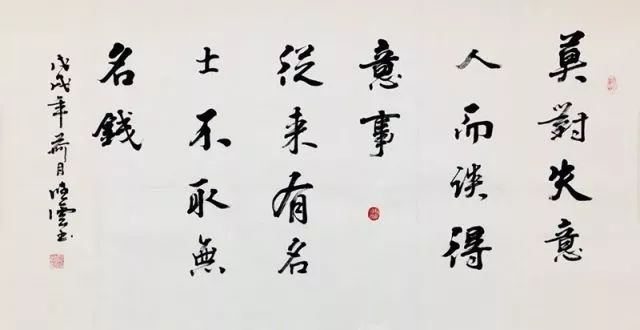 莫對失意
人而談得
意事
從来有名
士不取無
名錢
戊戌年荷月